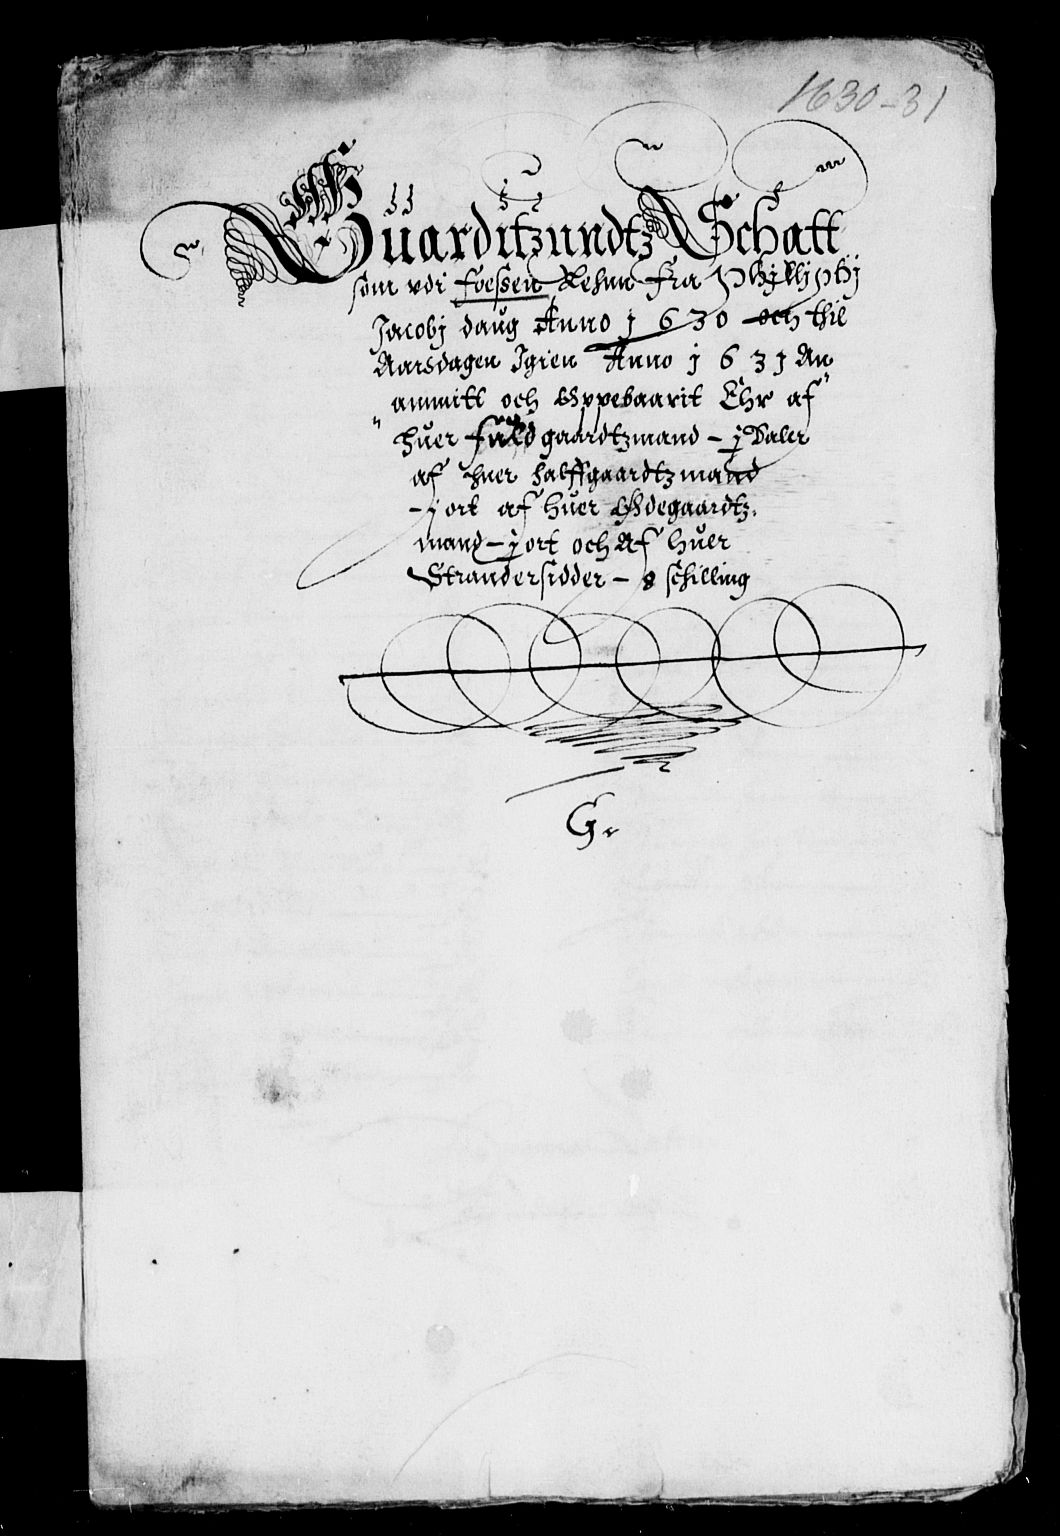 1630-31
Guarditzundtz Schatt
som vdi Foessen Lehnn fra Phyllipij
Jacobj daug Anno 1630 och thil
Aarsdagen Igien Anno 1631 An
ammitt och Oppebaarit Ehr af
huer fuldgaardtzmand - j Daler
af huer halffgaardtzmand
- j ort af huer Ødegaardtz
mand - j ort och Af huer
Strandersidder - 8 schilling
G.